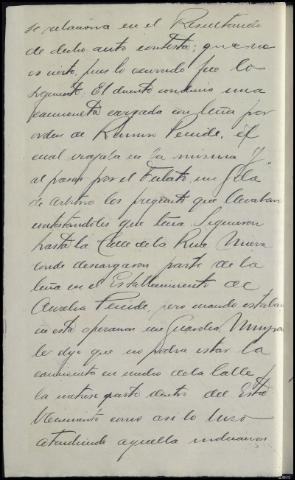 se relaciona en el Resultando
de dicho auto contesta; que no
es cierto, pues lo ocurrido fue lo
siguiente. El dicente conducia una
camioneta cargada con leña por
orden de Ramon Pende, el
cual viajaba en la misma y
al pasar por el Fielato un Gefe
de Arbitrios les preguntó que llevaban
contestándoles que leña siguieron
hasta la Calle de la Rua Nueva
donde descargaron parte de la
leña en el Establecimiento de
Aurelio Pende, pero cuando estaban
en esta operacion un Guardia Municipal
le dijo que no podia estar la
camioneta en medio de la calle y
la metiese parte dentro del Esta
blecimiento como asi lo hizo
atendiendo aquella